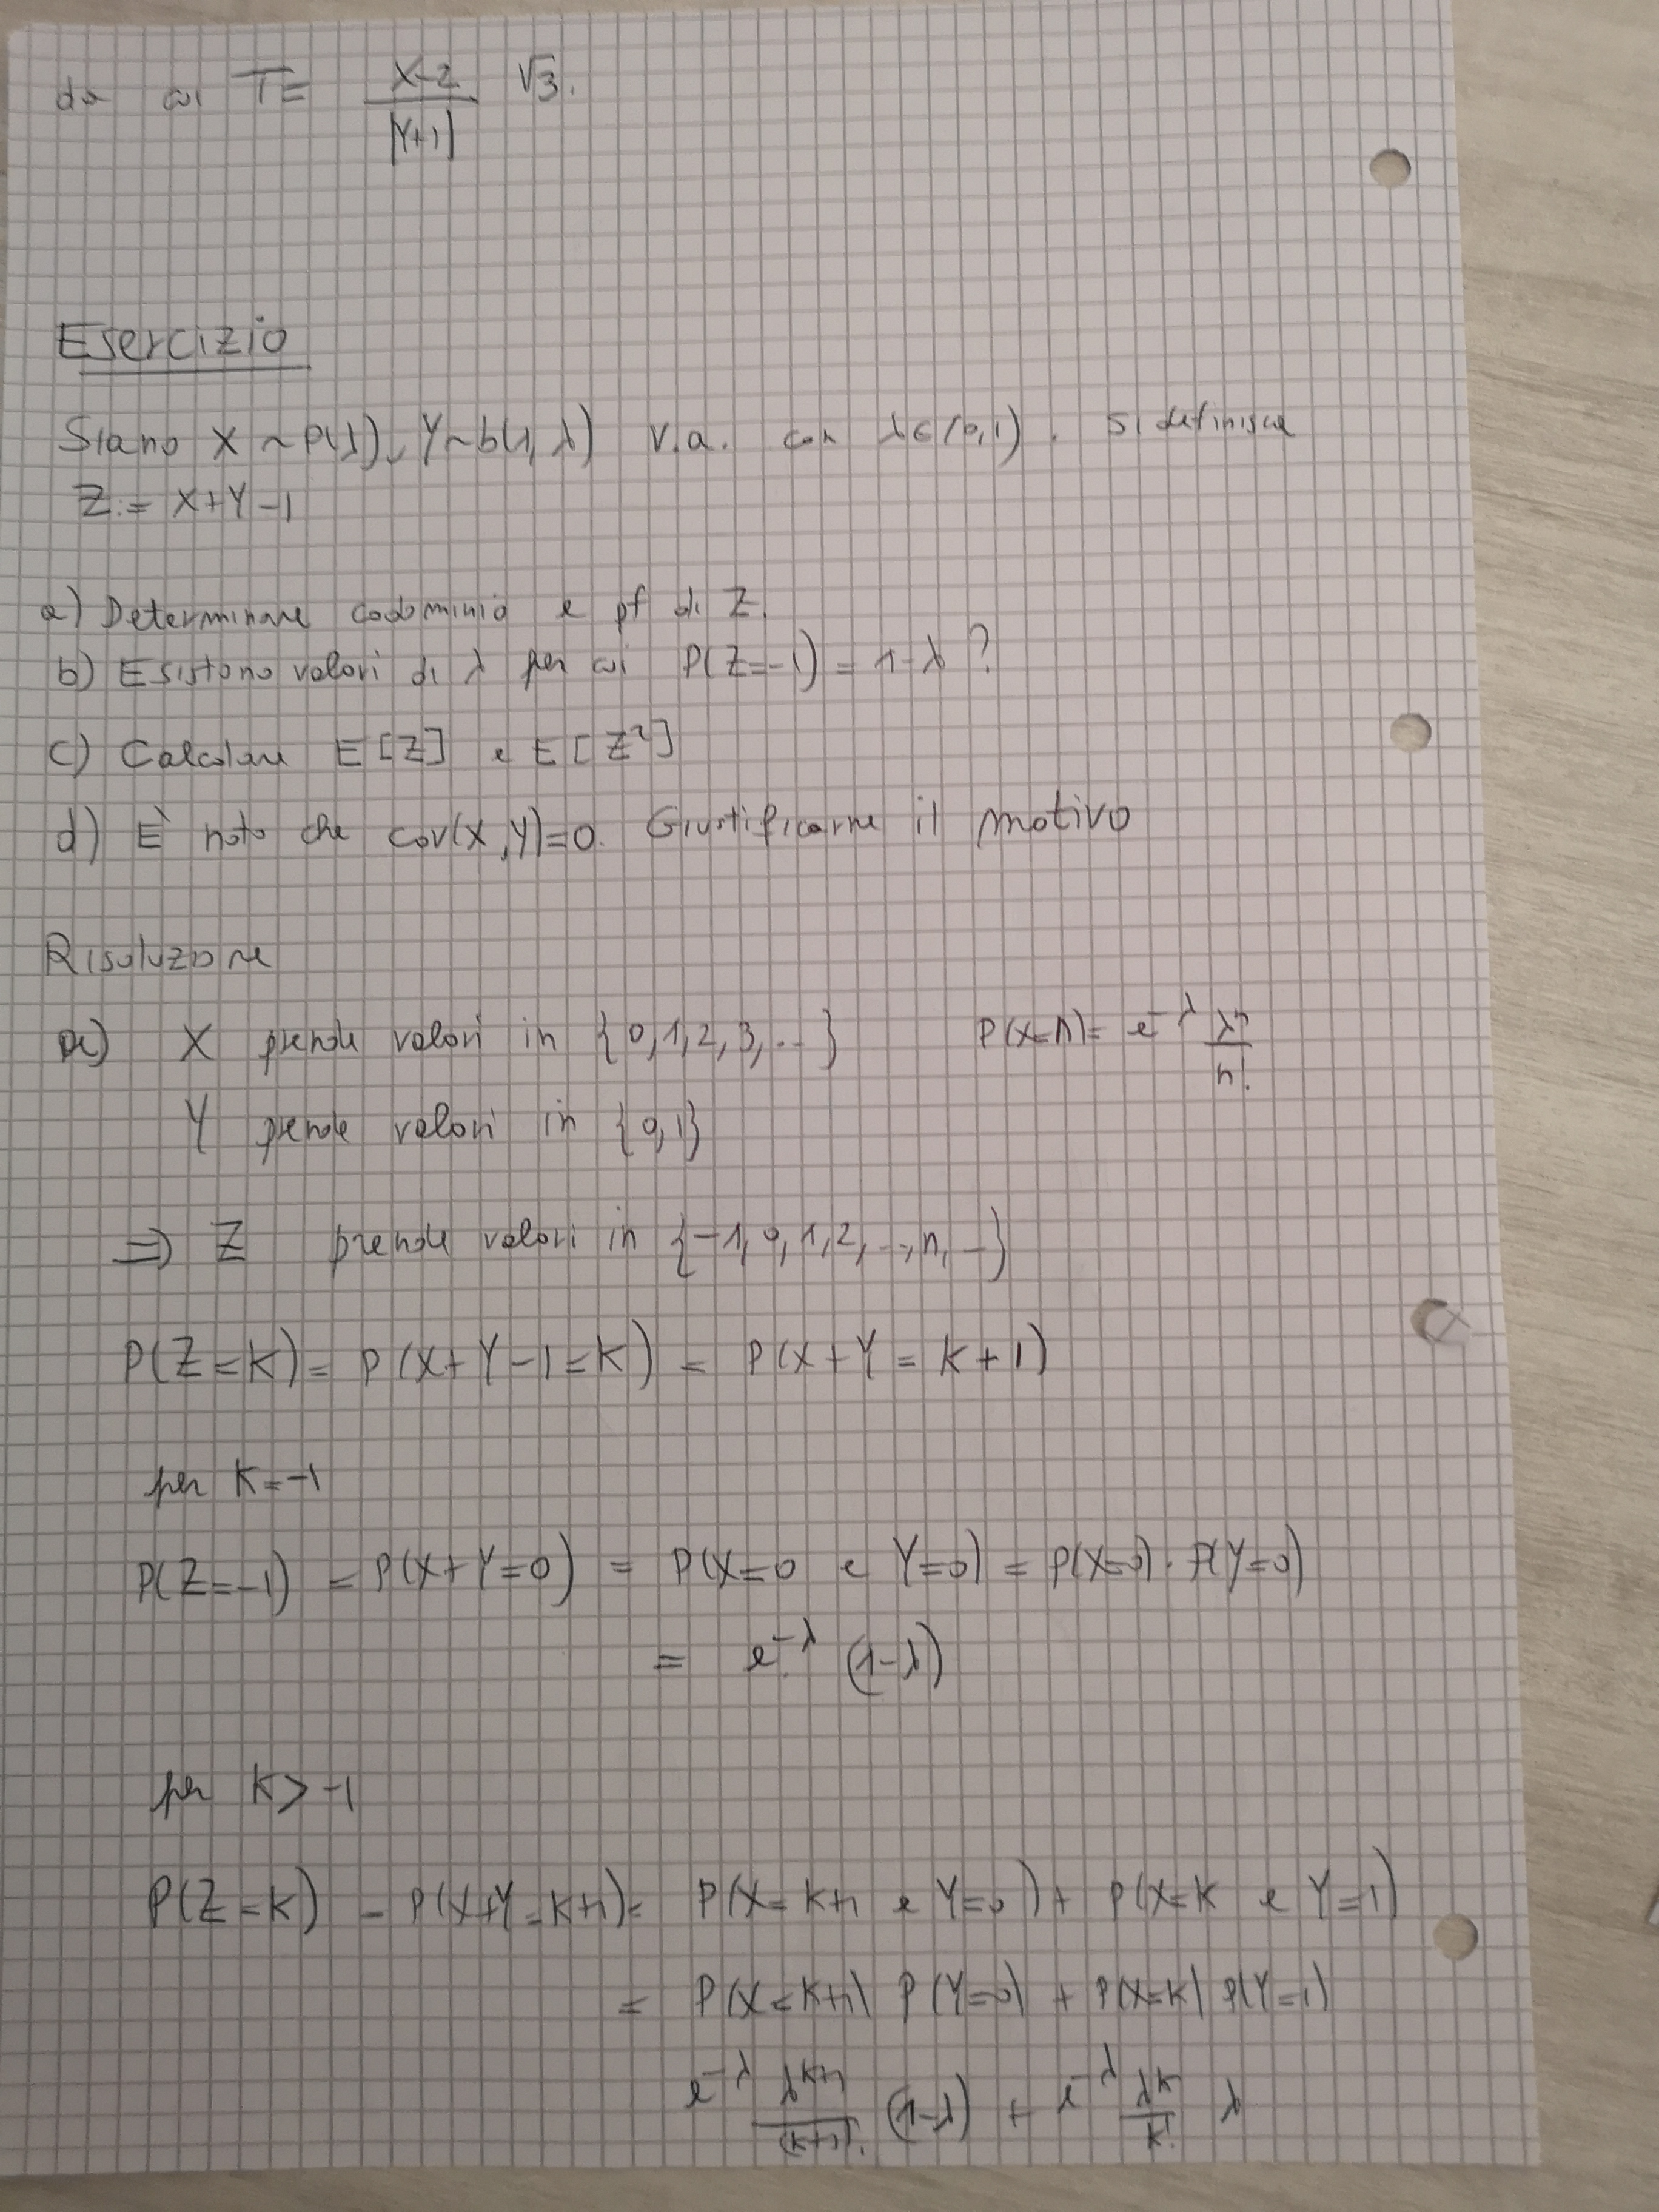 da cui T = (X-2)/|Y+1| √3.
Esercizio
Siano X ~ P(λ), Y ~ b(1, λ) v.a. con λ ∈ (0,1). Si definisca
Z := X+Y-1
a) Determinare codominio e pf di Z.
b) Esistono valori di λ per cui P(Z=-1) = 1-λ ?
c) Calcolare E[Z] e E[Z²]
d) È noto che cov(X,Y)=0. Giustificarne il motivo
Risoluzione
a) X prende valori in {0,1,2,3,...} P(X=n) = e^-λ λ^n/n!
Y prende valori in {0,1}
⇒ Z prende valori in {-1,0,1,2,...,n,...}
P(Z=K) = P(X+Y-1=K) = P(X+Y=K+1)
per K=-1
P(Z=-1) = P(X+Y=0) = P(X=0 e Y=0) = P(X=0)·P(Y=0)
= e^-λ (1-λ)
per K>-1
P(Z=K) = P(X+Y=K+1) = P(X=K+1 e Y=0) + P(X=K e Y=1)
= P(X=K+1) P(Y=0) + P(X=K) P(Y=1)
e^-λ λ^(K+1)/(K+1)! (1-λ) + e^-λ λ^K/K! λ